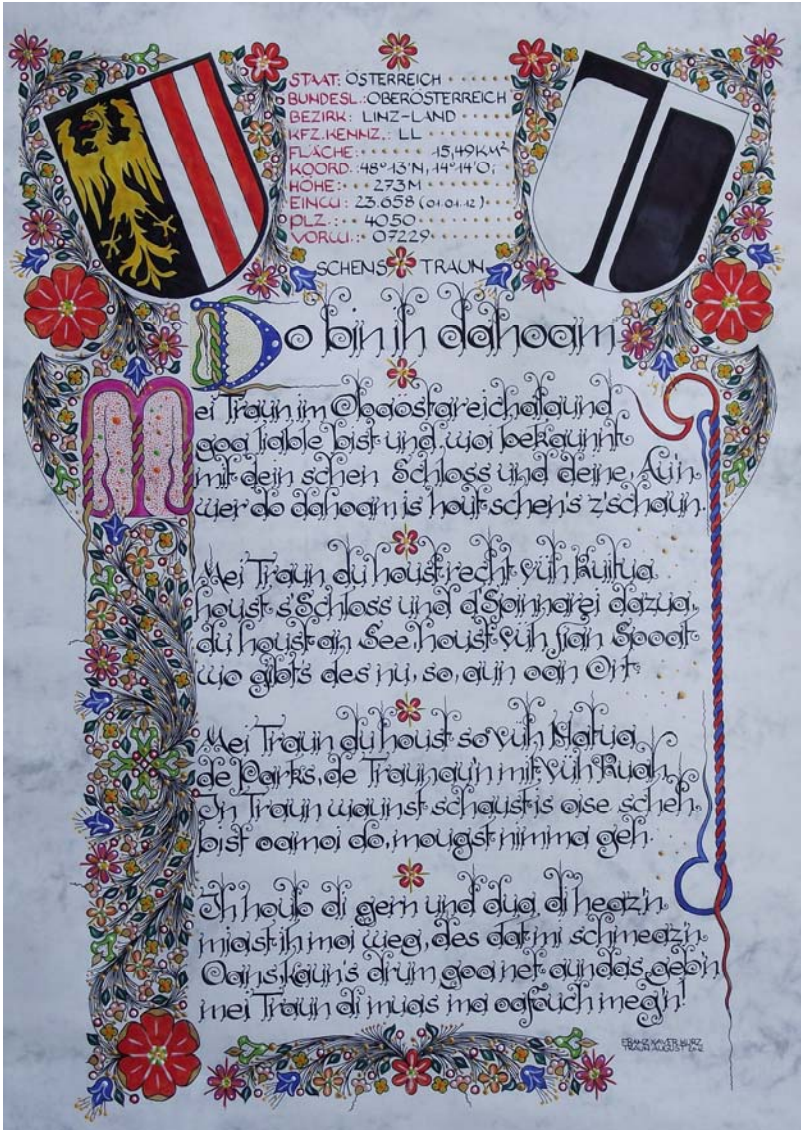 STAAT: ÖSTERREICH
BUNDESL.: OBERÖSTERREICH
BEZIRK: LINZ-LAND
KFZ.KENNZ.: LL
FLÄCHE: 15,49KM²
KOORD.: 48°13'N, 14°14'O;
HÖHE: 273M
EINW: 23.658 (01.01.12)
PLZ.: 4050
VORW.: 07229
SCHENS TRAUN
Do bin ih dahoam
Mei Traun im Obaöstareichalaund
goa liable bist und woi bekaunnt
mit dein schen Schloss und deine Au'n
wer do dahoam is hout schen's z'schaun.
Mei Traun du houst recht vüh Kuitua
houst s'Schloss und d'Spinnarei dazua,
du houst an See, houst vüh fian Spoat
wo gibt's des nu, so, aun oan Ort.
Mei Traun du houst so vüh Natua
de Parks, de Traunau'n mit vüh Ruah,
In Traun waunst schaust is oise scheh
bist oamoi do, mougst nimma geh.
Ih houb di gern und dua di heaz'n
miast ih moi weg, des dat mi schmeaz'n
Oans, kaun's drum goa net aundas geb'n
mei Traun di muas ma oafouch meg'n!
FRANZ XAVER KURZ
TRAUN AUGUST 2012